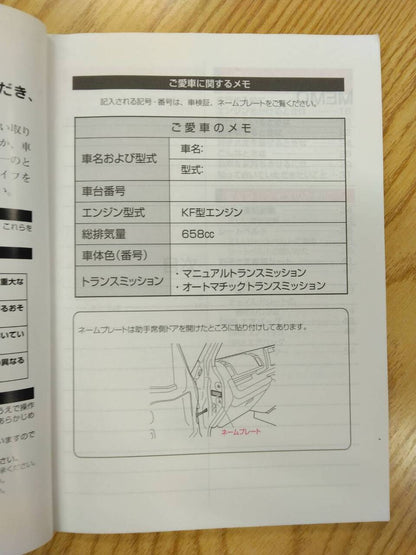 だき、
い取り
か、車
一のと
イフを
い。
これらを
重大な
るおそ
いてい
異なる
うえで操作
あらかじめ
いますので
さい。
承ください。
ご愛車に関するメモ
記入される記号・番号は、車検証、ネームプレートをご覧ください。
ご愛車のメモ
車名および型式 車名:
型式:
車台番号
エンジン型式 KF型エンジン
総排気量 658cc
車体色(番号)
トランスミッション ・マニュアルトランスミッション
・オートマチックトランスミッション
ネームプレートは助手席側ドアを開けたところに貼り付けてあります。
ネームプレート